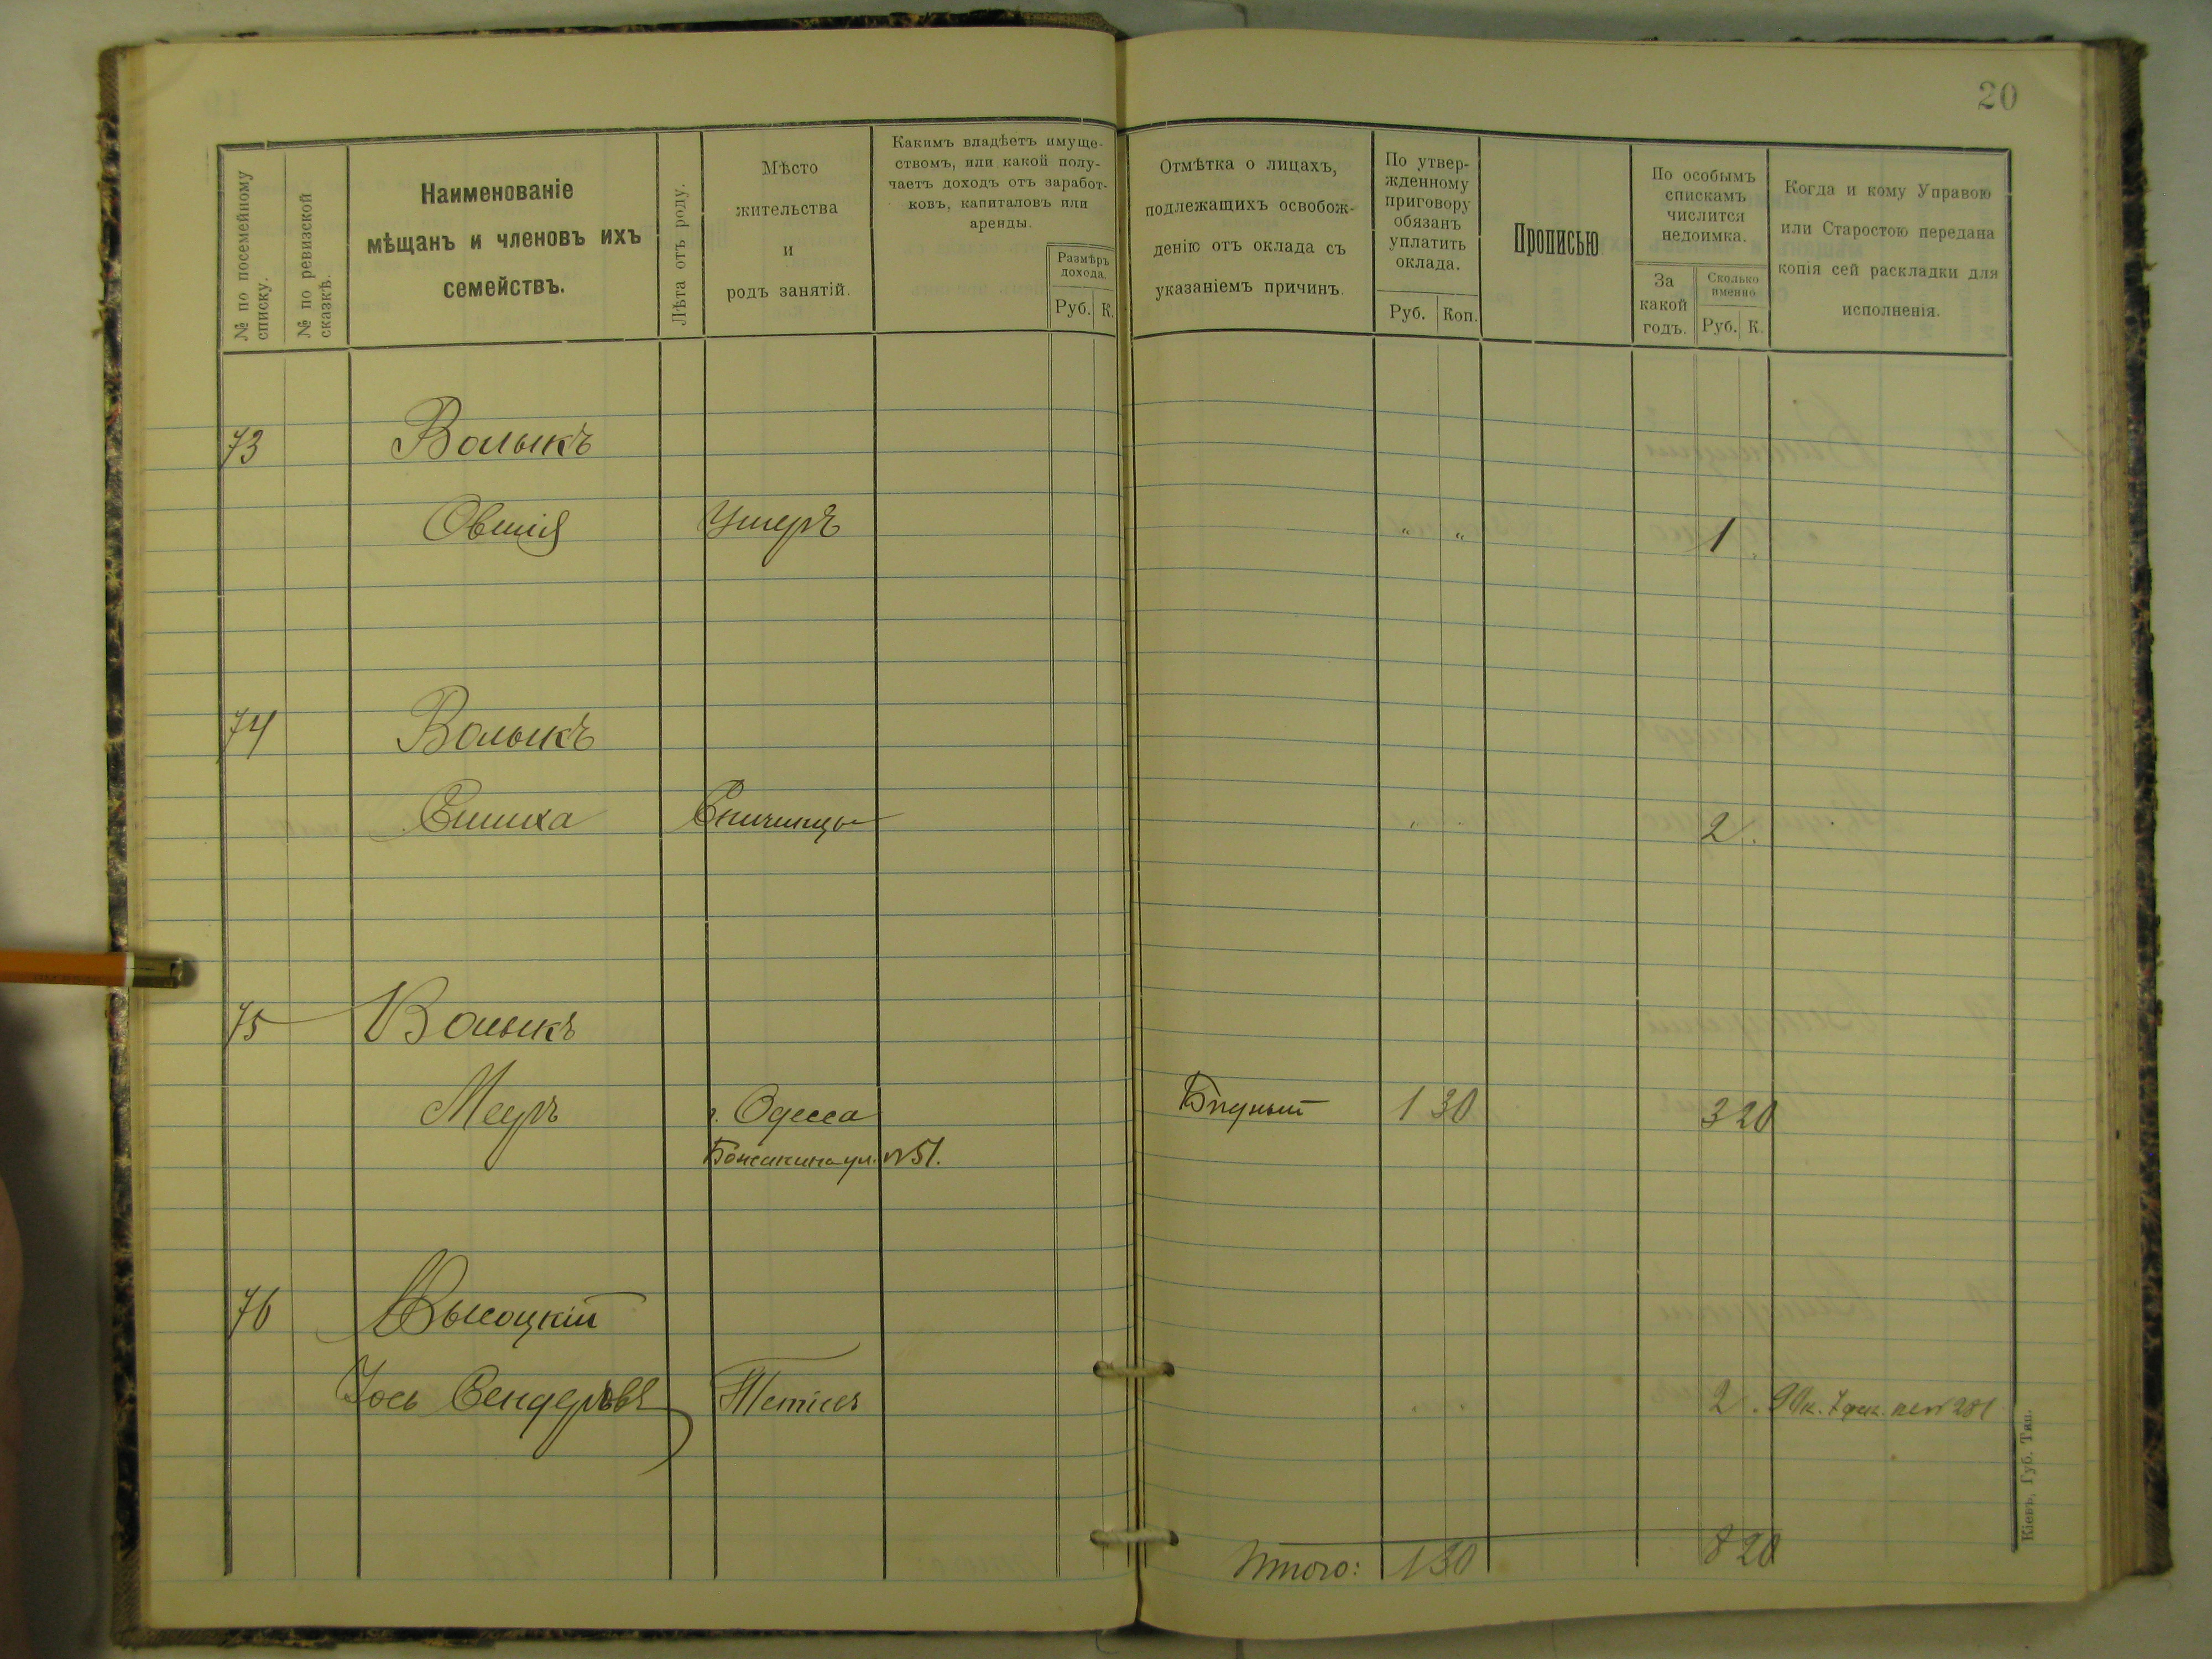 20
№ по посемейному списку.
№ по ревизской сказкѣ.
Наименованіе
мѣщанъ и членовъ ихъ
семействъ.
Лѣта отъ роду.
Мѣсто
жительства
и
родъ занятій.
Какимъ владѣетъ имуще-
ствомъ, или какой полу-
чаетъ доходъ отъ заработ-
ковъ, капиталовъ или
аренды.
Размѣръ
дохода.
Руб. К.
Отмѣтка о лицахъ,
подлежащихъ освобож-
денію отъ оклада съ
указаніемъ причинъ.
По утвер-
жденному
приговору
обязанъ
уплатить
оклада.
Руб. Коп.
Прописью
По особымъ
спискамъ
числится
недоимка.
За
какой
годъ.
Сколько
именно
Руб. К.
Когда и кому Управою
или Старостою передана
копія сей раскладки для
исполненія.
73 Волыкъ
Овшія Умеръ " " 1
74 Волыкъ
2
75 Волыкъ
Меръ г. Одесса Бѣдный 1 30 3 20
ул. №51.
76 Высоцкій
Іось Сендеровъ Тетіевъ 2 90к.
Итого: 1 30 8 20
Кіевъ, Губ. Тип.